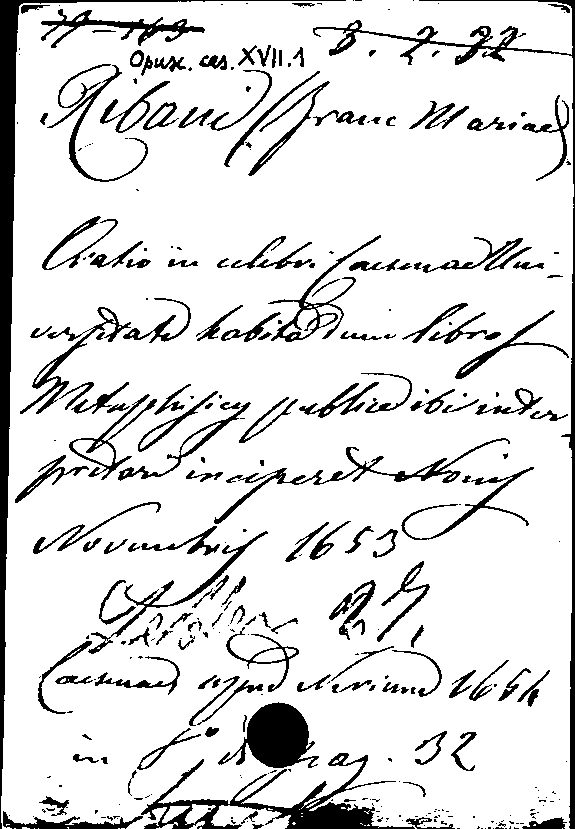 79-163
3. 2. 32
Opusc. ces. XVII.1
Ribani (Franc Mariae)
Oratio in celebri Caesenae Uni-
versitate habita dum libros
Metaphisicos publice ibi inter-
pretari inciperet Nonis
Novembris 1653
27.
Caesenae apud Nerium 1654
in 8° di pag. 32